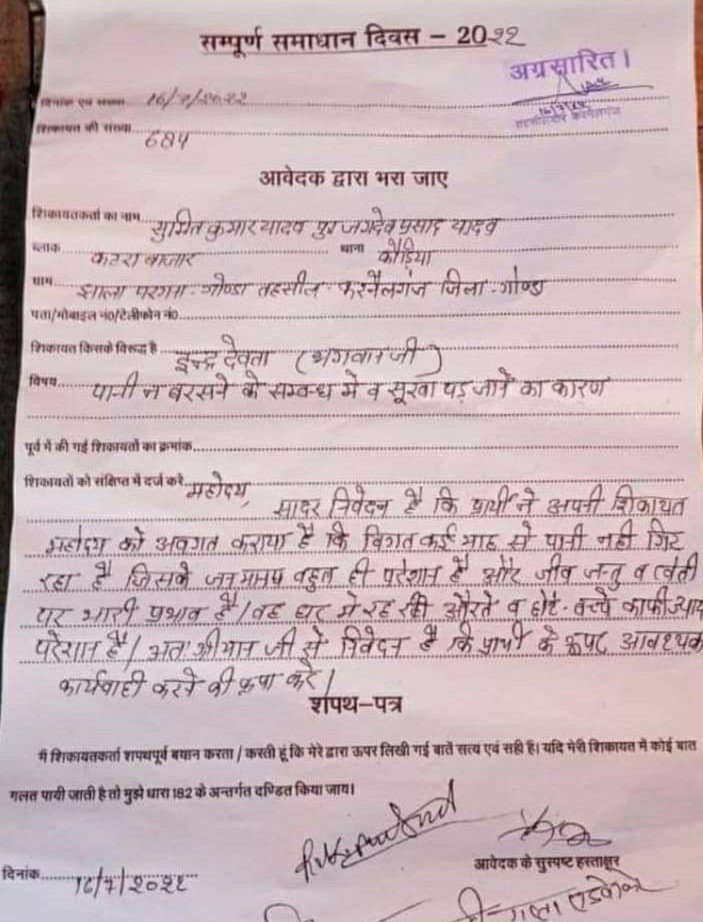 सम्पूर्ण समाधान दिवस – 2022
अग्रसारित।
दिनांक एवं संख्या 16/7/2022
शिकायत की संख्या
आवेदक द्वारा भरा जाए
शिकायतकर्ता का नाम सुमित कुमार यादव पुत्र जगदेव प्रसाद यादव
ब्लाक कटरा बाजार थाना कौड़िया
ग्राम झाला परगना-गोण्डा तहसील-करनैलगंज जिला-गोण्डा
पता/मोबाइल नं0/टेलीफोन नं0
शिकायत किसके विरूद्ध है इन्द्र देवता (भगवान जी)
विषय पानी न बरसने के सम्बन्ध में व सूखा पड़ जाने का कारण
पूर्व में की गई शिकायतों का क्रमांक
शिकायतों को संक्षिप्त में दर्ज करे महोदय,
सादर निवेदन है कि प्रार्थी ने अपनी शिकायत
महोदय को अवगत कराया है कि विगत कई माह से पानी नही गिर
रहा है जिसके बहुत ही परेशान है और जीव जन्तु व खेती
पर भारी प्रभाव है/ वह घर में रह रही औरते व छोटे-बच्चे काफी ज्याद
परेशान है/ अतः श्रीमान जी से निवेदन है कि प्रार्थी के आवश्यक
कार्यवाही करने की कृपा करे।
शपथ–पत्र
मैं शिकायतकर्ता शपथपूर्व बयान करता / करती हूं कि मेरे द्वारा ऊपर लिखी गई बातें सत्य एवं सही है। यदि मेरी शिकायत में कोई बात
गलत पायी जाती है तो मुझे धारा 182 के अन्तर्गत दण्डित किया जाय।
आवेदक के सुस्पष्ट हस्ताक्षर
दिनांक 16/7/2022